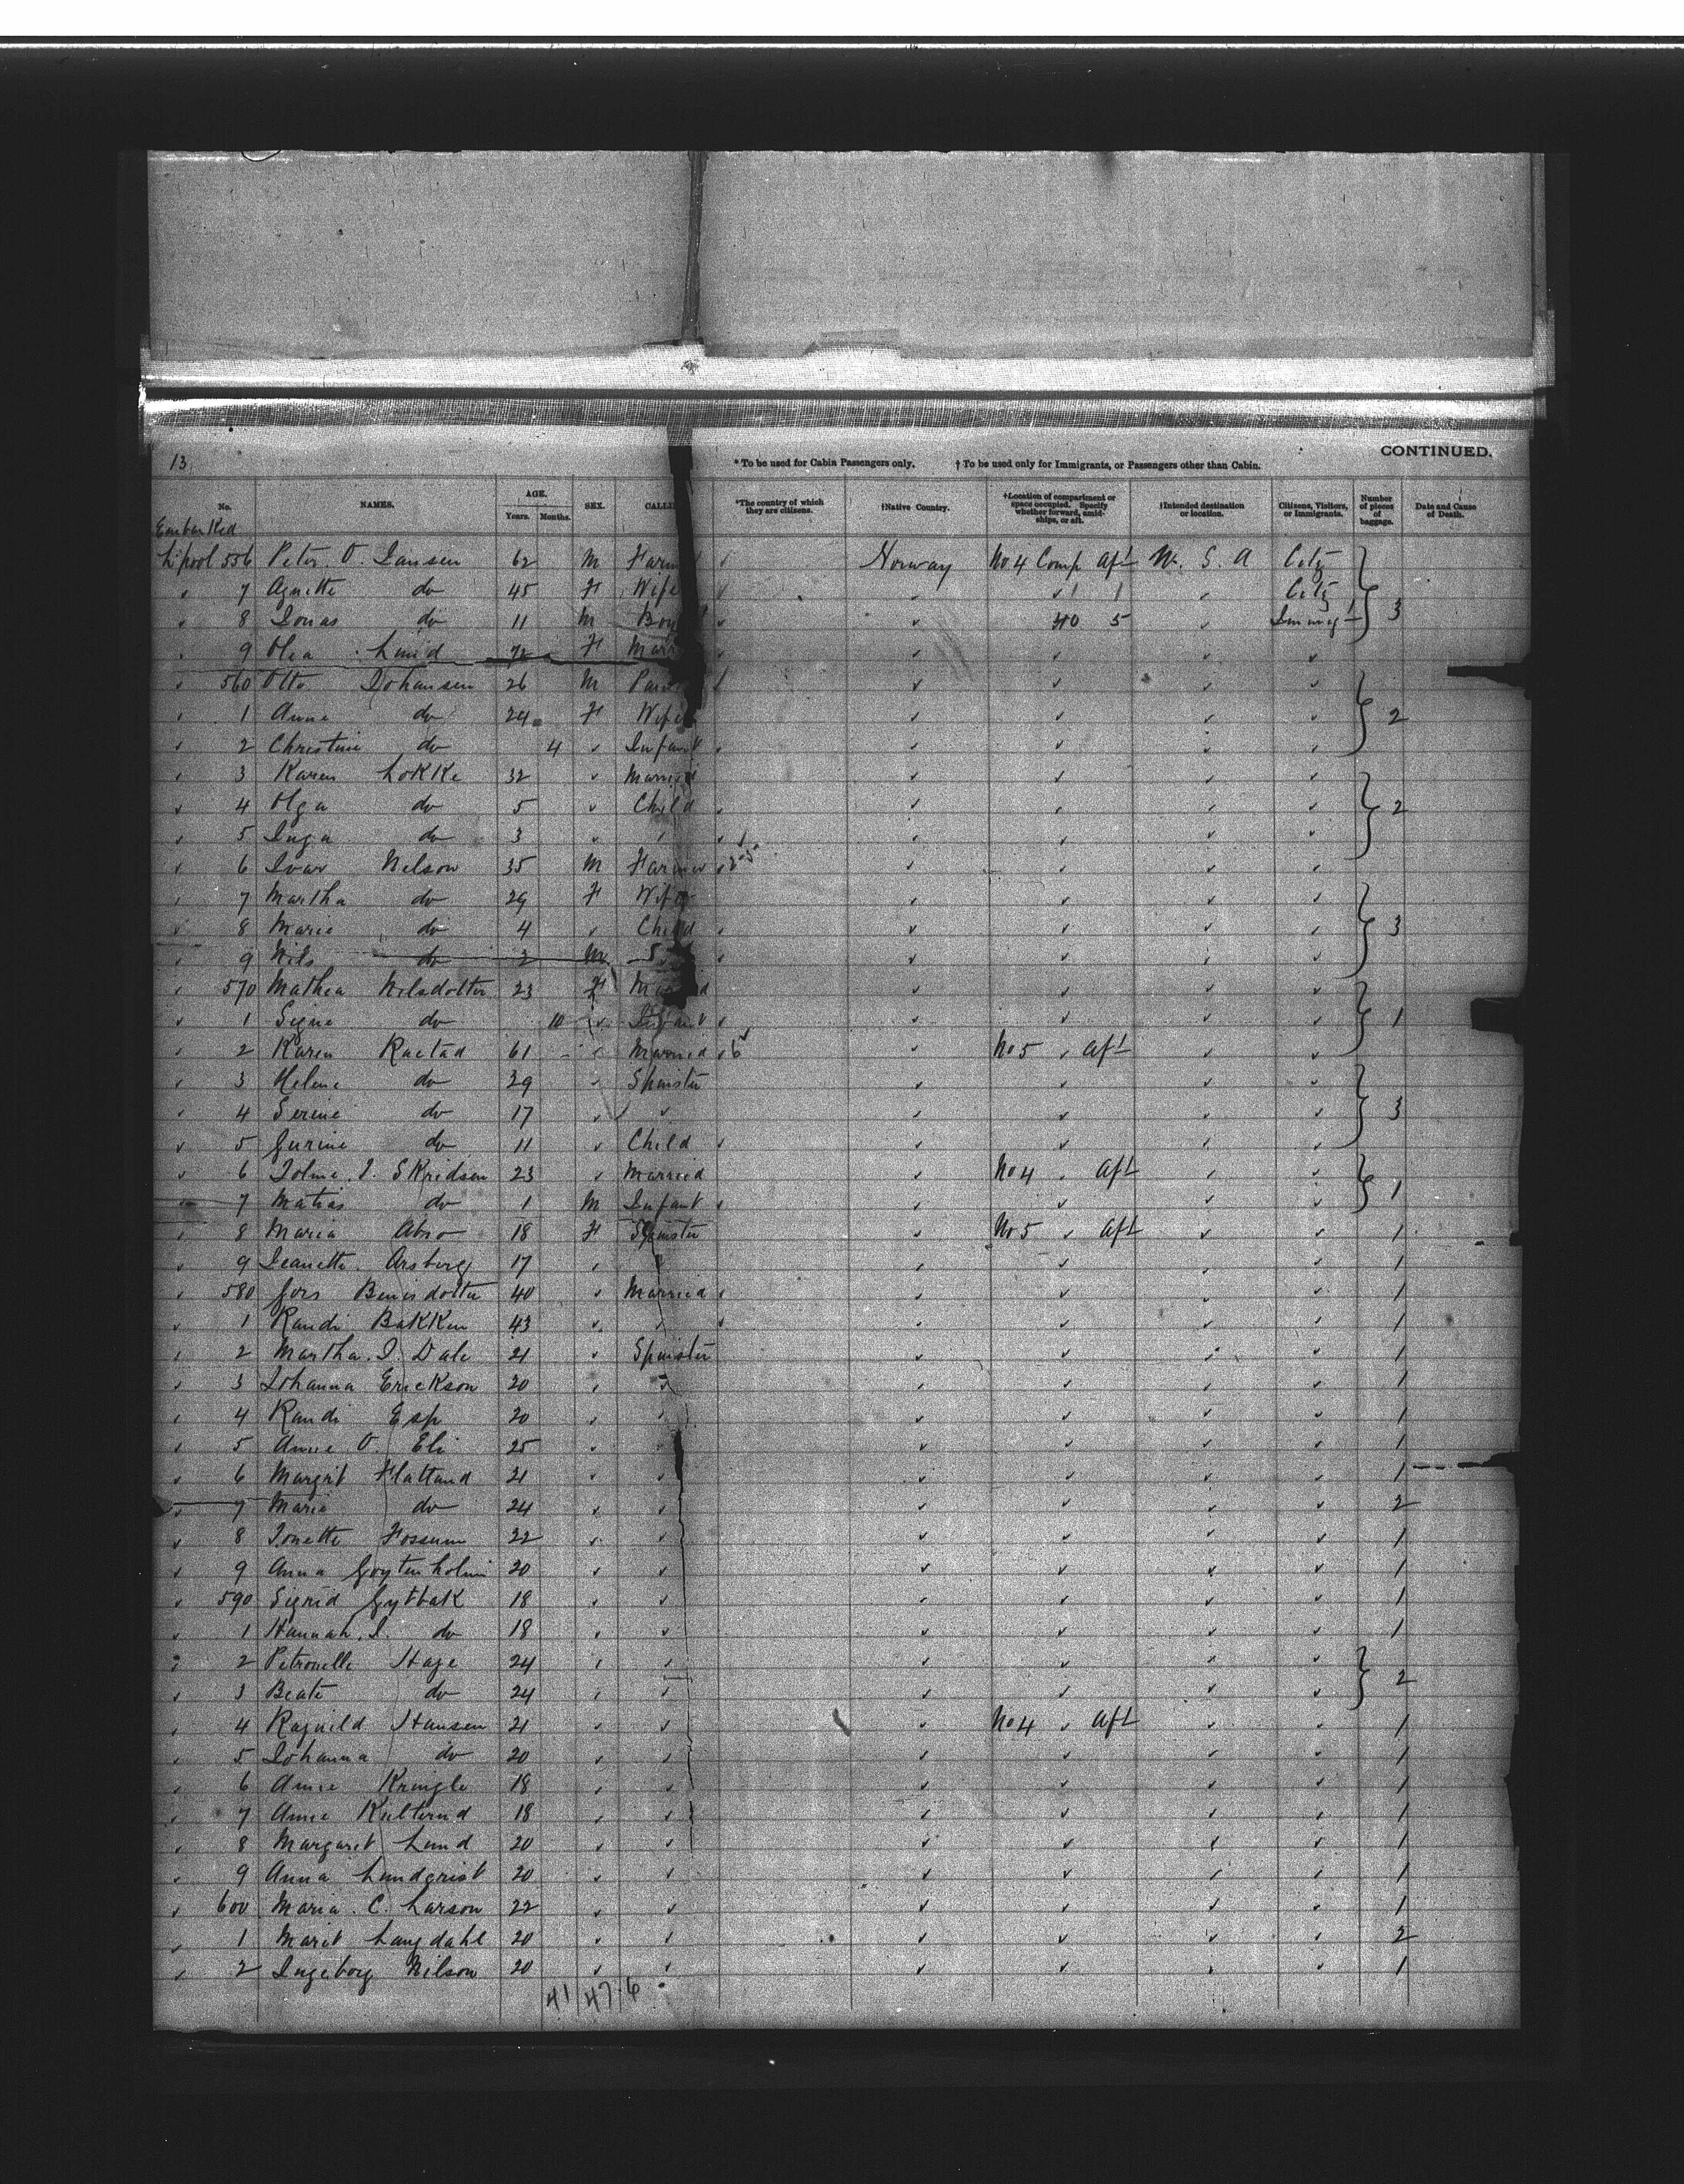 CONTINUED.
13
* To be used for Cabin Passengers only. † To be used only for Immigrants, or Passengers other than Cabin.
No. NAMES. AGE. Years. Months. SEX. CALLI *The country of which they are citizens. †Native Country. †Location of compartment or space occupied. Specify whether forward, amidships, or aft. †Intended destination or location. Citizens, Visitors, or Immigrants. Number of pieces of baggage. Date and Cause of Death.
Embarked
L'pool 556 Peter. O. Iansen 62 M Farm Norway No 4 Comp Aft U. S. A City
7 Agnette do 45 F Wife City
8 Ionas do 11 M Boy 5 Immigt 3
9 Olea 72 F Marr
560 Otto Iohansen 26 M
1 Anna do 24 F Wife 2
2 Christine do 4 Infant
3 Karen Lokke 32 Married
4 Olga do 5 Child 2
5 Inga do 3
6 Ivar Nelson 35 M Farmer
7 Martha do 29 F Wife
8 Marie do 4 Child 3
9 Nils do M
570 Mathea Nilsdotter 23 F
1 Signe do 10 Infant 1
2 Karen Raetad 61 Married 6 No 5 Aft
3 Helene do 29 Spinster
4 Serine do 17 3
5 Gurine do 11 Child
6 Tolme. I. SKridsen 23 Married No 4 Aft
7 Matias do 1 M Infant 1
8 Maria Abro 18 F Spinster No 5 Aft 1
9 Ieanette. Arsberg 17 1
580 Gors Benisdotter 40 Married 1
1 Randi BaKKen 43 1
2 Martha. I. Dale 21 Spinster 1
3 Iohanna Erickson 20 1
4 Randi Esp 20 1
5 Anne O. Eli 25 1
6 Margit Flatland 21 1
7 Marie do 24 2
8 Ionette Fossum 22 1
9 Anna 20 1
590 Sigrid Gytbak 18 1
1 Hannah. I. do 18 1
2 Petronelle Hage 24
3 Beate do 24 2
4 Ragnild Hansen 21 No 4 Aft 1
5 Iohanna do 20 1
6 Anne Kringle 18 1
7 Anne 18 1
8 Margaret Lund 20 1
9 Anna Lundqrist 20 1
600 Maria. C. Larson 22 1
1 Marit Langdahl 20 2
2 Ingeborg Nilson 20 1
41 47 6